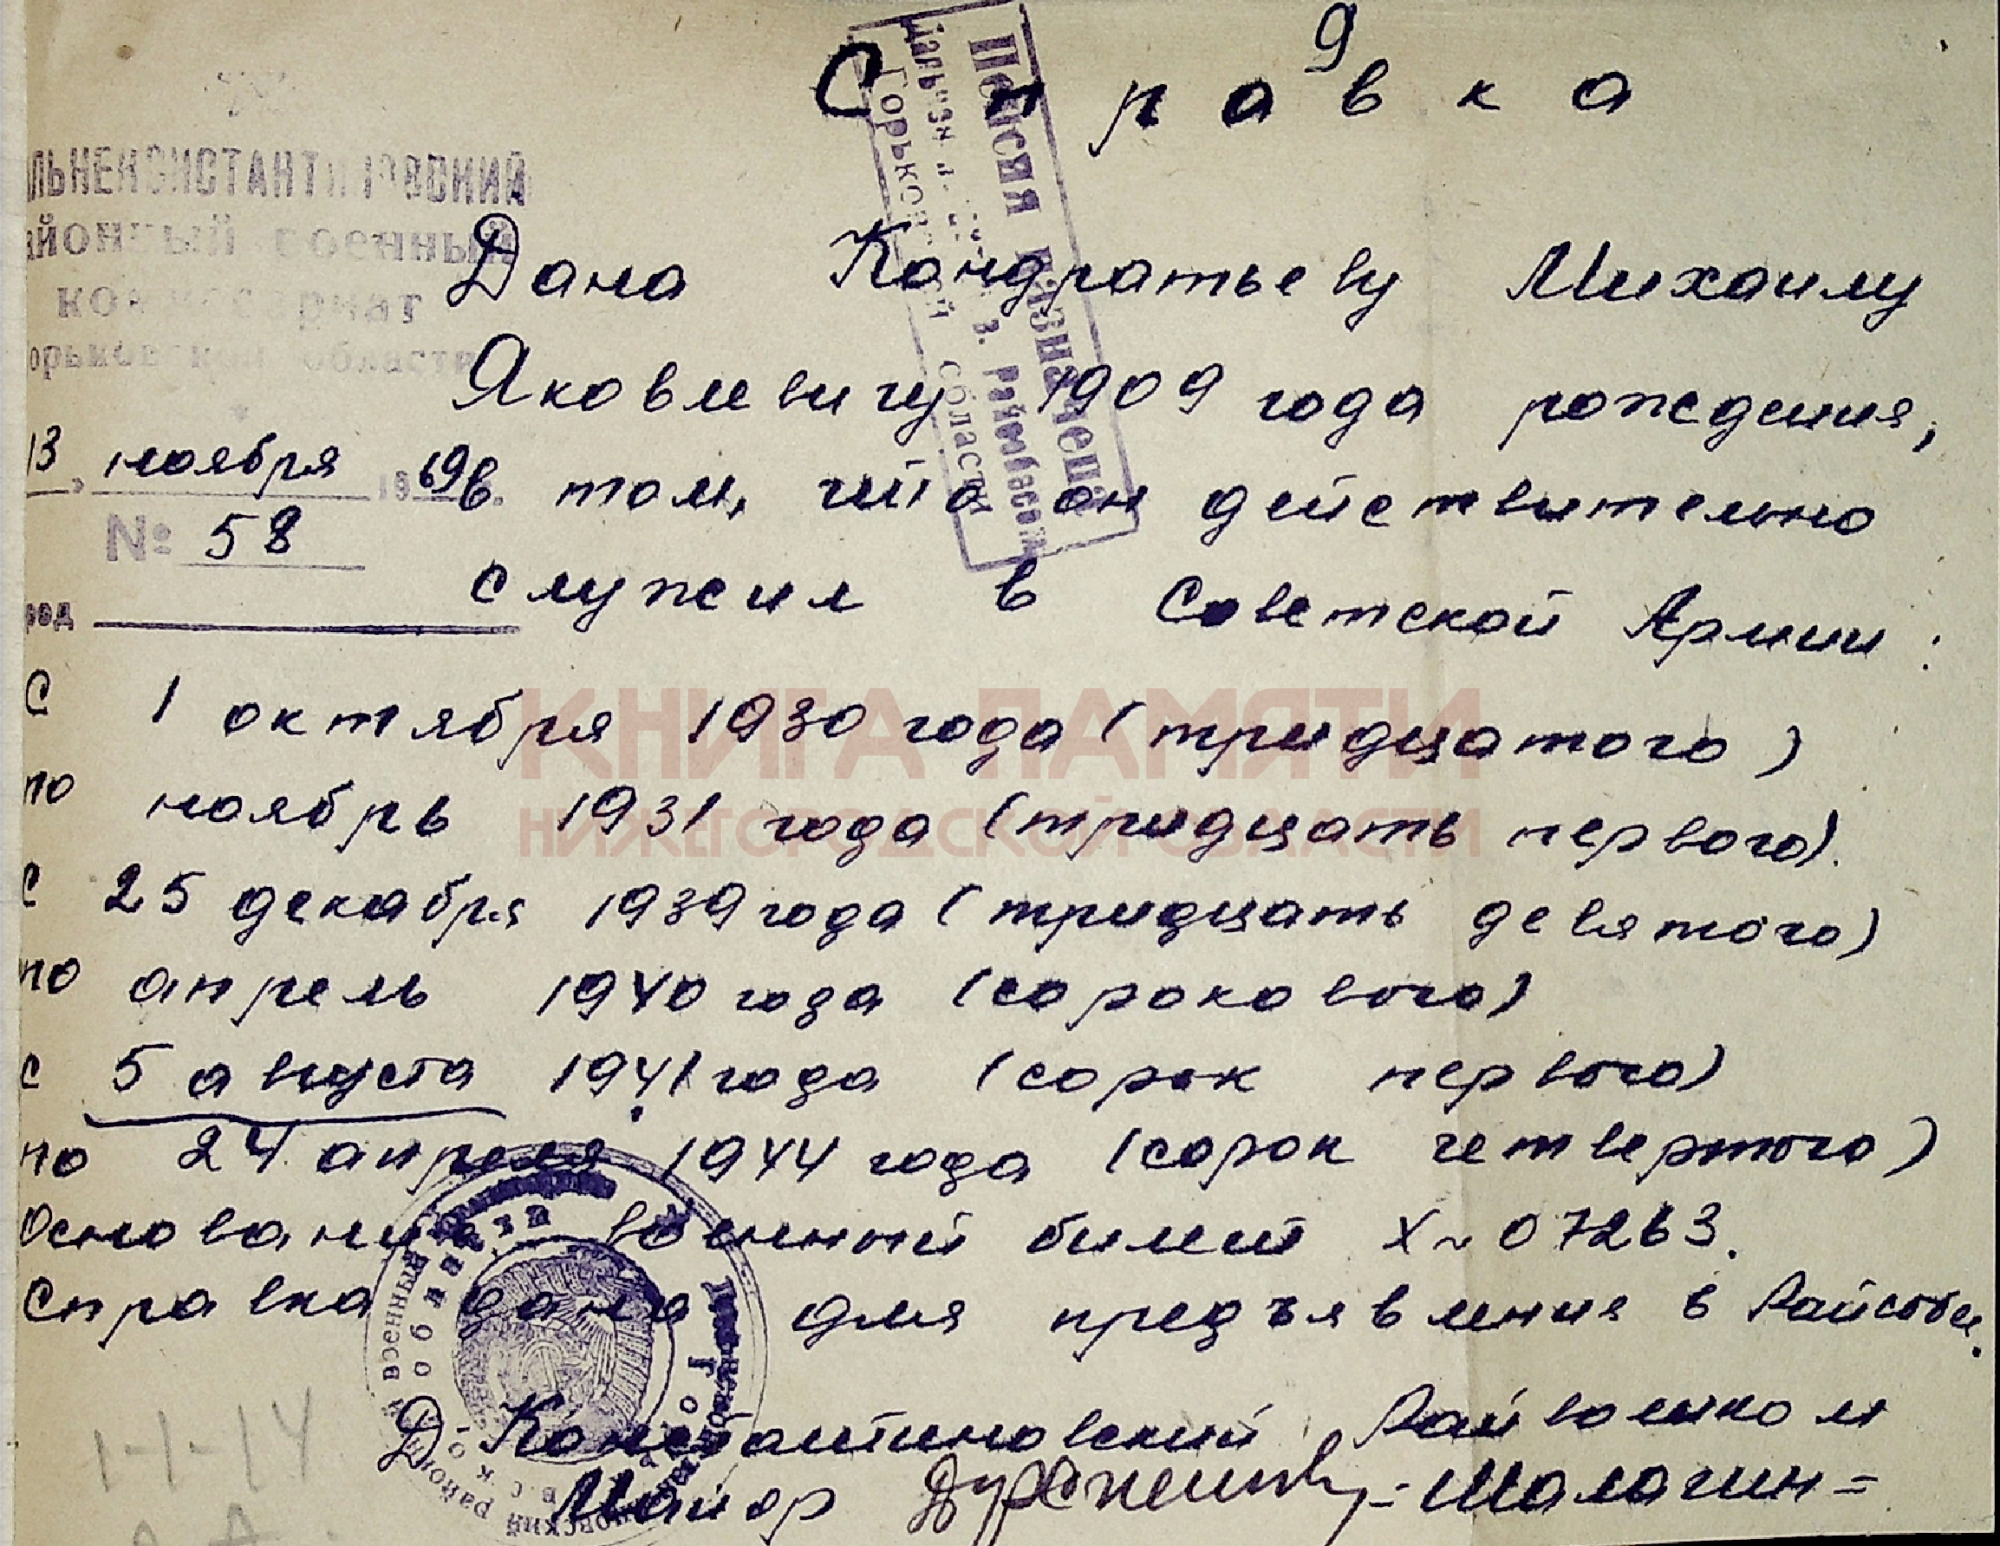 9
Справка
ЛЬНЕКОНСТАНТИНОВСКИЙ
айонный военный
комиссариат
орьковской области
13 " ноября 1969 г.
№ 58
род
Пенсия назначена
Горьковской области
Дана Кондратьеву Михаилу
Яковлевичу 1909 года рождения,
в том, что он действительно
служил в Советской Армии:
С 1 октября 1930 года (тридцатого)
по ноябрь 1931 года (тридцать первого).
С 25 декабря 1939 года (тридцать девятого)
по апрель 1940 года (сорокового)
с 5 августа 1941 года (сорок первого)
по 24 апреля 1944 года (сорок четвертого)
Основание: военный билет Х~07263.
Справка дана для предъявления в Райсобес.
Д-Константиновский Райвоенком
Майор =Шалагин=
1-1-14
КНИГА ПАМЯТИ
НИЖЕГОРОДСКОЙ ОБЛАСТИ